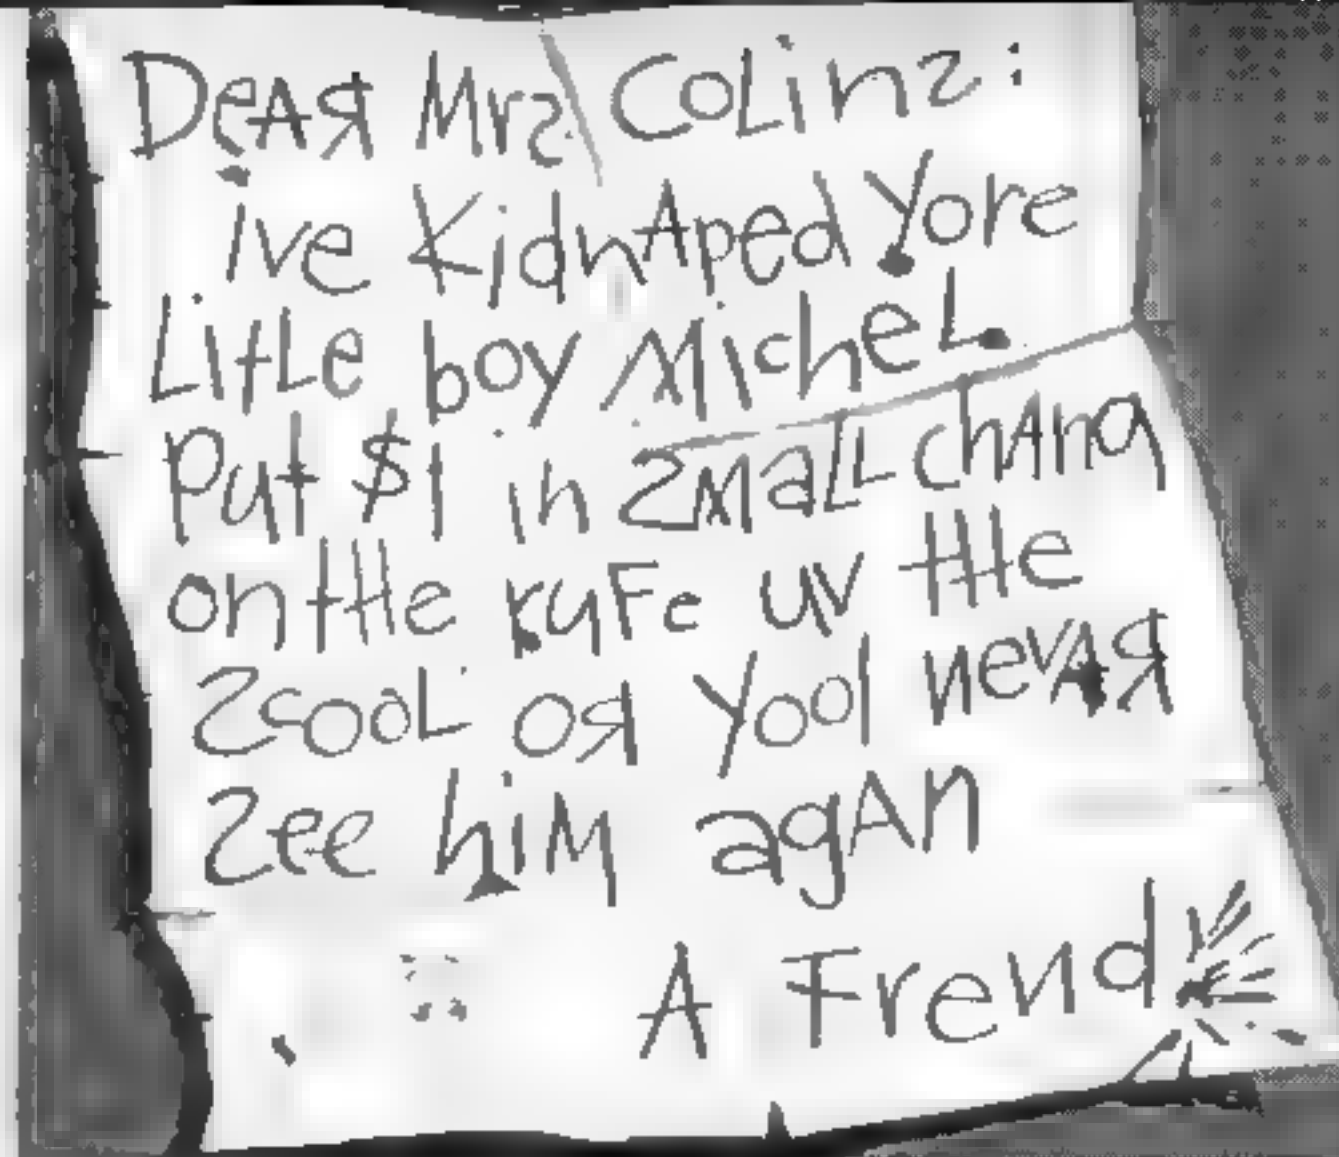 DeAR Mrs Colins:
ive KidnAped Yore
LitLe boy MicheL.
Put $1 in SmaLL chAng
on tHe rufe uv tHe
ScooL oR Yool nevAR
See hiM agAn
A Frend